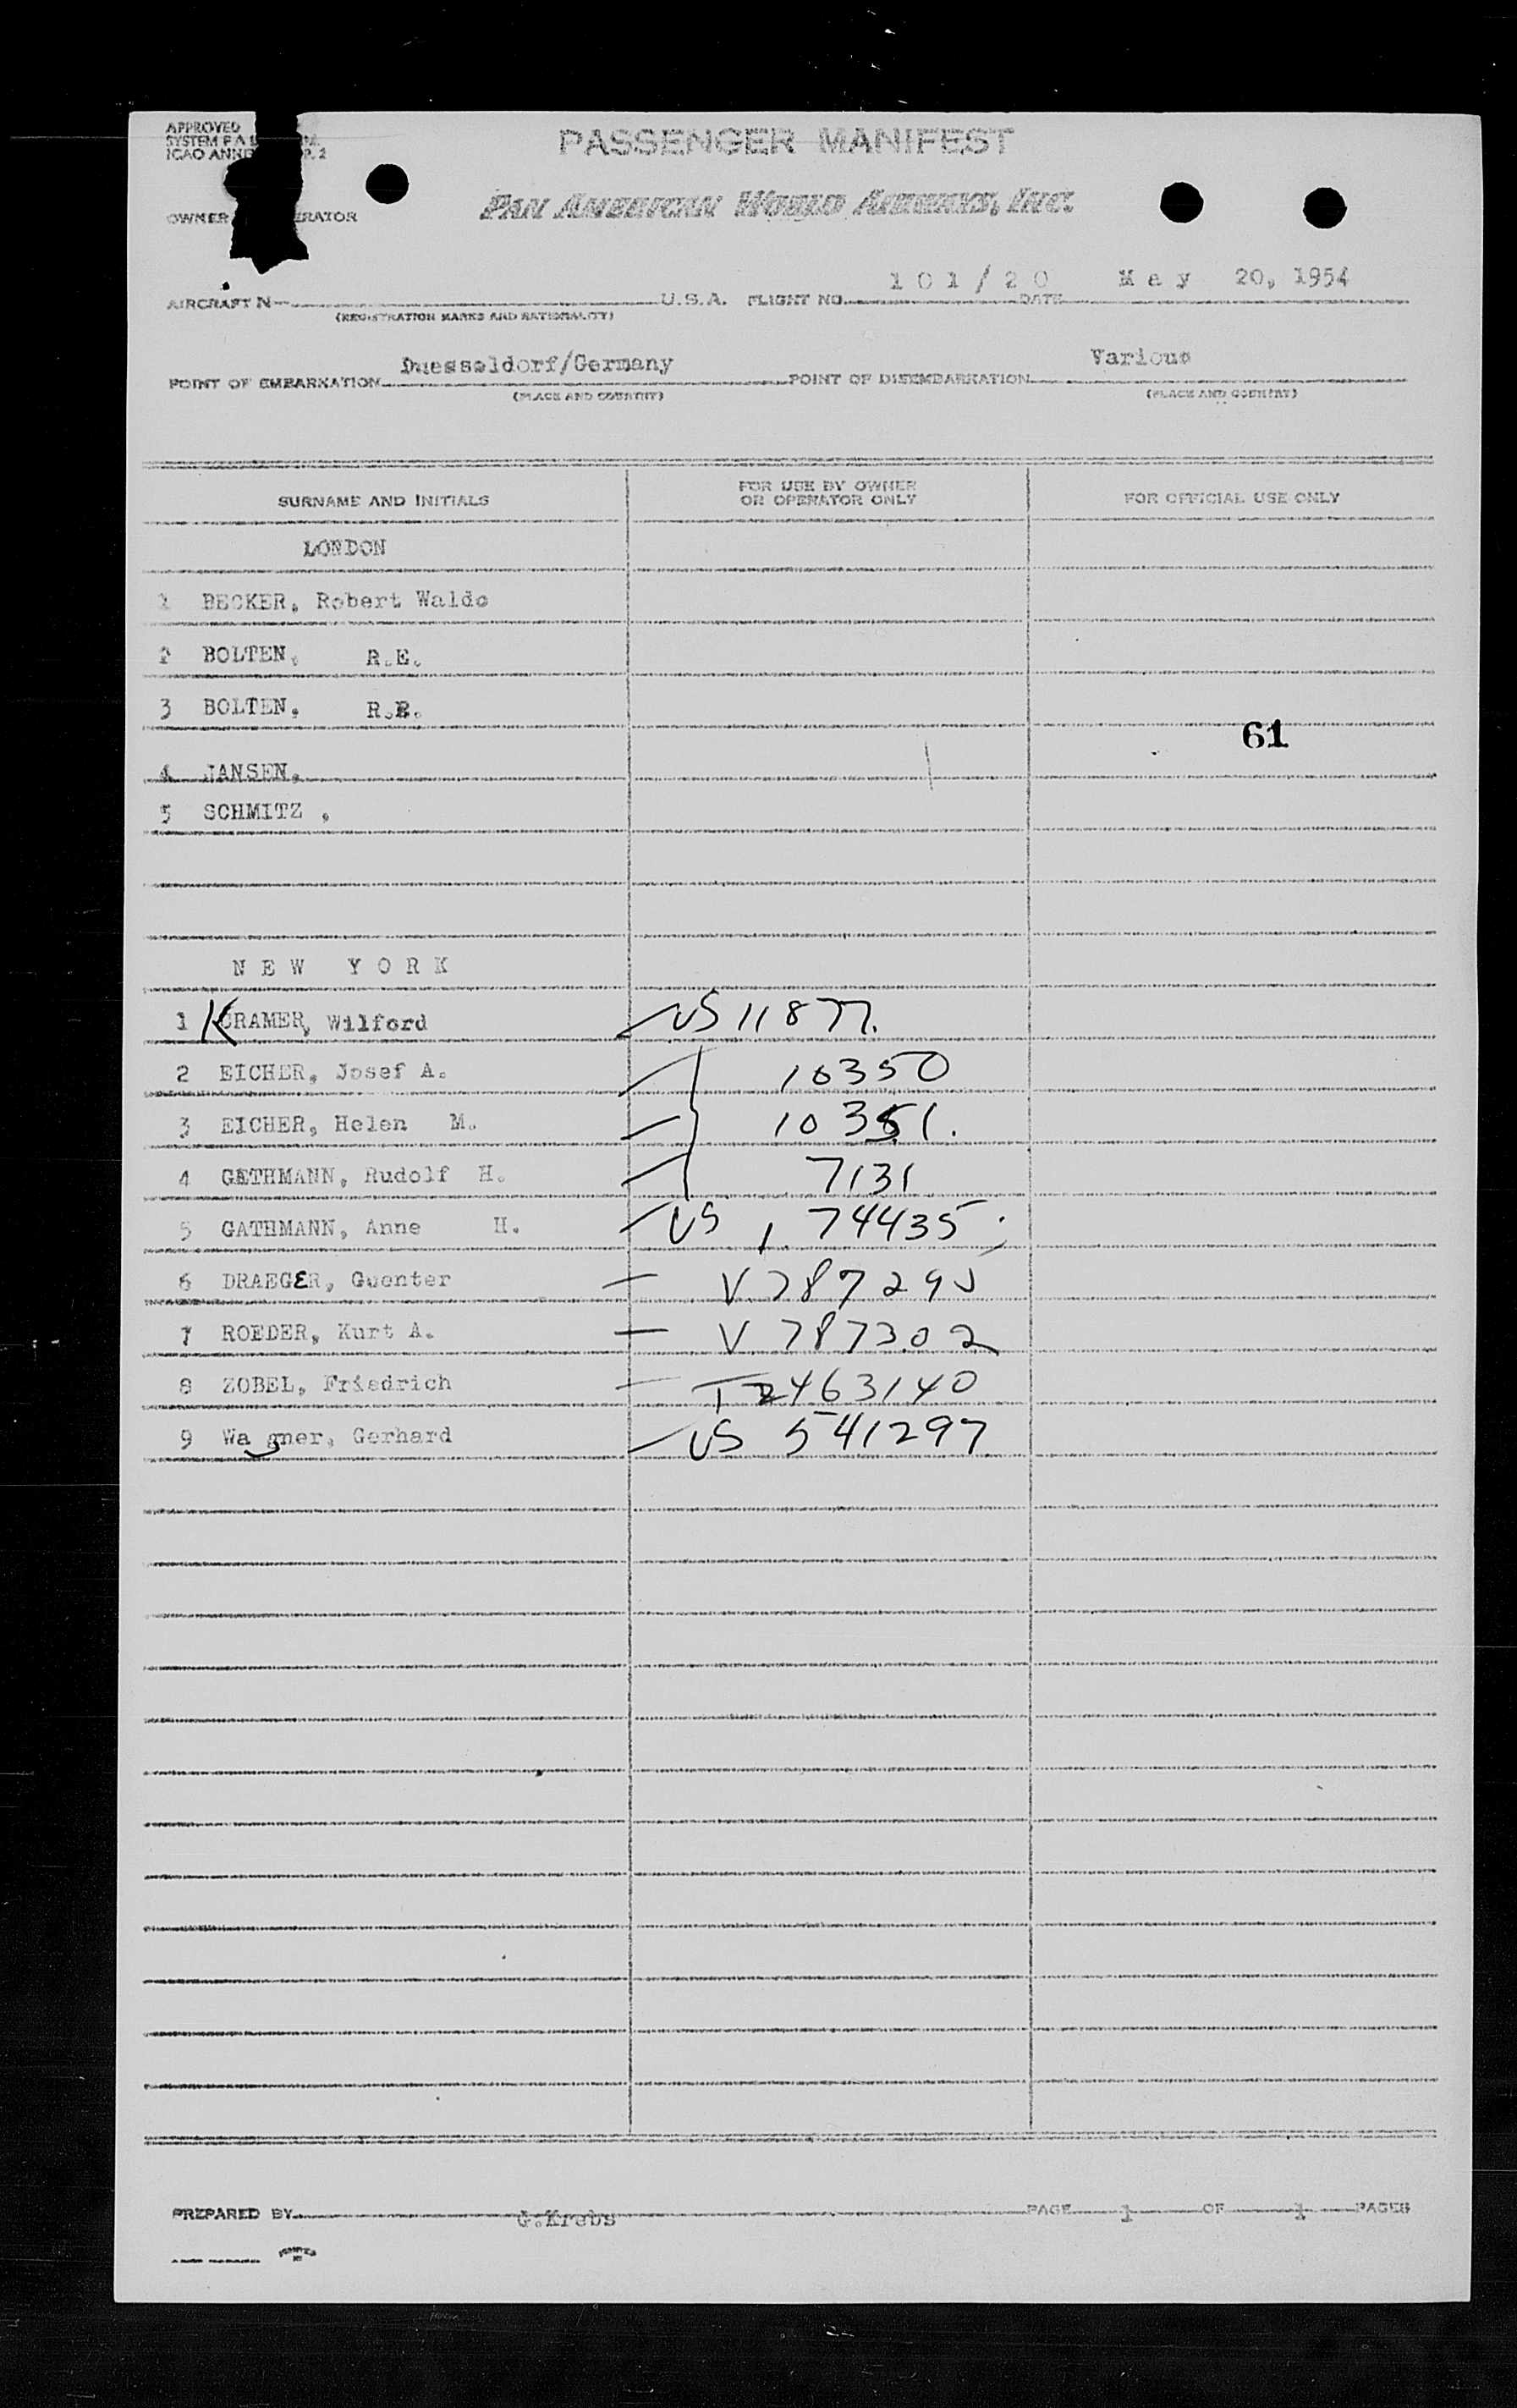 APPROVED
PASSENGER MANIFEST
PAN AMERICAN WORLD AIRWAYS, INC.
OWNER
101/20 May 20, 1954
AIRCRAFT N U.S.A. FLIGHT NO. DATE
(REGISTRATION MARKS AND NATIONALITY)
Duesseldorf/Germany Various
POINT OF EMBARKATION POINT OF DISEMBARKATION
(PLACE AND COUNTRY) (PLACE AND COUNTRY)
SURNAME AND INITIALS FOR USE BY OWNER OR OPERATOR ONLY FOR OFFICIAL USE ONLY
LONDON
1 BECKER, Robert Waldo
2 BOLTEN, R.E.
3 BOLTEN, R.
61
4 JANSEN,
5 SCHMITZ ,
NEW YORK
1 KRAMER, Wilford US 11877.
2 EICHER, Josef A. 10350
3 EICHER, Helen M. 10351.
4 GATHMANN, Rudolf H. 7131
5 GATHMANN, Anne H. US 1 74435
6 DRAEGER, Guenter V 787295
7 ROEDER, Kurt A. V 787302
8 ZOBEL, Friedrich T2463140
9 Wagner, Gerhard US 541297
PREPARED BY G.Krebs PAGE 1 OF 1 PAGES